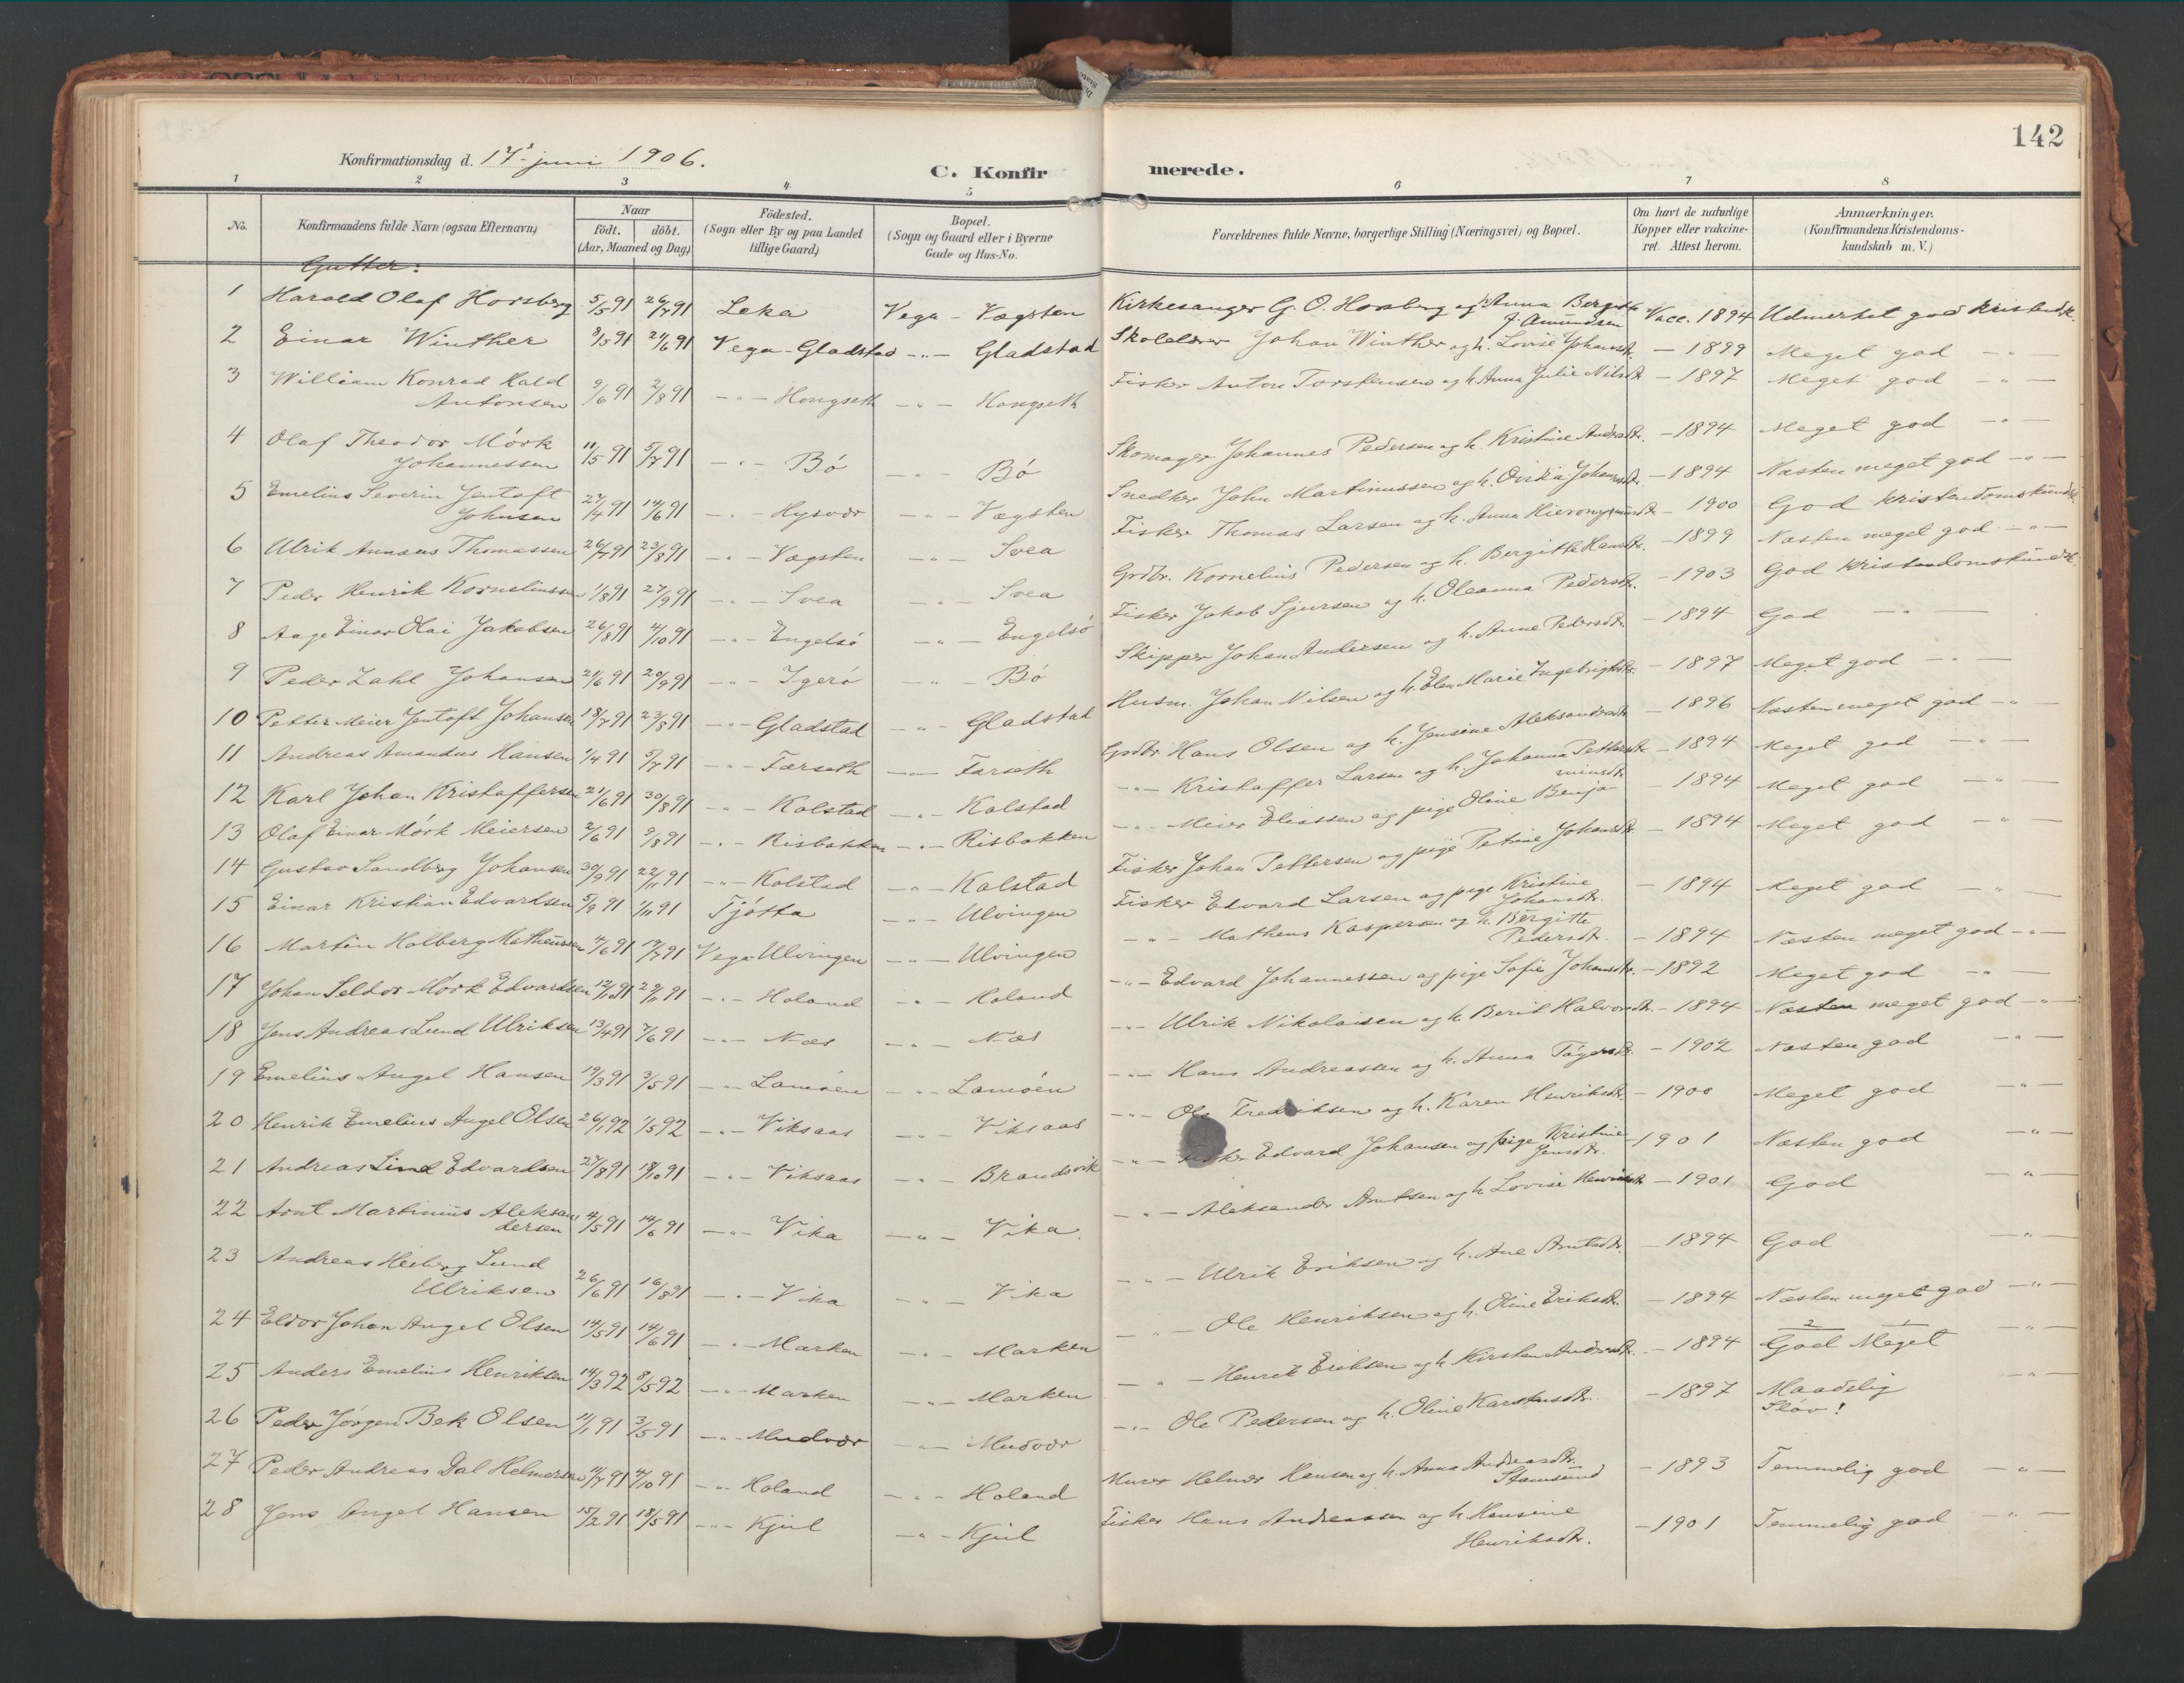 142
Konfirmationsdag d. 17' juni 1906.
C. Konfirmerede.
1 2 3 4 5 6 7 8
No. Konfirmandens fulde Navn (ogsaa Efternavn) Naar födt. döbt. (Aar, Maaned og Dag) Födested. (Sogn eller By og paa Landet tillige Gaard) Bopæl. (Sogn og Gaard eller i Byerne Gade og Hus-No. Forældrenes fulde Navne, borgerlige Stilling (Næringsvei) og Bopæl. Om havt de naturlige Kopper eller vakcineret. Attest herom. Anmærkninger. (Konfirmandens Kristendomskundskab m. V.)
Gutter:
1 Harald Olaf Horsberg 5/5 91 26/7 91 Leka Vega - Vægsten Kirkesanger G. O. Horsberg og h. Anna Bergitte J. Amundsen Vacc. 1894 Udmerket god kristendsk.
2 Einar Winther 8/5 91 21/6 91 Vega - Gladstad -"- Gladstad Skolelærer Johan Winther og h. Lovise Johansdtr. - 1899 Meget god -"-
3 William Konrad Hald Antonsen 9/6 91 2/8 91 -"- Hongseth -"- Hongseth Fisker Anton Torstensen og h. Anna Julie Nilsdtr. - 1897 Meget god -"-
4 Olaf Theodor Mörk Johannessen 11/5 91 5/7 91 -"- Bö -"- Bö Skomager Johannes Pedersen og h. Kristine Andersdtr. - 1894 Meget god -"-
5 Emelius Severin Jentoft Johnsen 27/4 91 14/6 91 -"- Hysvær -"- Vægsten Snedker John Martinussen og h. Johansdtr. - 1894 Næsten meget god -"-
6 Ulrik Annæus Thomassen 26/7 91 23/8 91 -"- Vægsten -"- Svea Fisker Thomas Larsen og h. Anna Hieronymusdtr. - 1900 God kristendomskundsk.
7 Peder Henrik Korneliussen 1/8 91 27/9 91 -"- Svea -"- Svea Grdbr. Kornelius Pedersen og h. Bergitte Hansdtr. - 1899 Næsten meget god -"-
8 Aage Einar Olai Jakobsen 26/8 91 4/10 91 -"- Engelsö -"- Engelsö Fisker Jakob Sjursen og h. Oleanna Pedersdtr. - 1903 God kristendomskundsk.
9 Peder Zahl Johansen 21/6 91 20/9 91 -"- Igerö -"- Bö Skipper Johan Andersen og h. Anne Pedersdtr. - 1894 God -"-
10 Petter Meier Jentoft Johansen 18/7 91 23/8 91 -"- Gladstad -"- Gladstad Husm. Johan Nilsen og h. Elen Marie Ingebrigtsdtr. - 1897 Meget god -"-
11 Andreas Amandus Hansen 1/4 91 5/7 91 -"- Færseth -"- Færseth Grdbr. Hans Olsen og h. Jensine Aleksandersdtr. - 1896 Næsten meget god -"-
12 Karl Johan Kristoffersen 21/6 91 30/8 91 -"- Kolstad -"- Kolstad -"- Kristoffer Larsen og h. Johanna Pettersdtr. - 1894 Meget god -"-
13 Olaf Einar Mörk Meiersen 2/6 91 9/8 91 -"- Risbakken -"- Risbakken -"- Meier Eliassen og pige Oline Benjaminsdtr. - 1894 Meget god -"-
14 Gustav Sandberg Johansen 30/9 91 22/11 91 -"- Kolstad -"- Kolstad Fisker Johan Pettersen og pige Petrine Johansdtr. - 1894 Meget god -"-
15 Einar Kristian Edvardsen 5/9 91 1/11 91 Tjötta -"- Ulvingen Fisker Edvard Larsen og pige Kristine Johansdtr. - 1894 Meget god -"-
16 Martin Holberg Matheussen 4/6 91 19/7 91 Vega Ulvingen -"- Ulvingen -"- Matheus Kaspersen og h. Bergitte Pedersdtr. - 1894 Næsten meget god -"-
17 Johan Seldor Mörk Edvardsen 12/10 91 29/11 91 -"- Holand -"- Holand -"- Edvard Johannessen og pige Sofie Johansdtr. - 1892 Meget god -"-
18 Jens Andreas Lund Ulriksen 13/4 91 7/6 91 -"- Næs -"- Næs -"- Ulrik Nikolaisen og h. Berit Halvorsdtr. - 1894 Næsten meget god -"-
19 Emelius Angel Hansen 19/3 91 3/5 91 -"- Lamöen -"- Lamöen -"- Hans Andreassen og h. Anna Tögersdtr. - 1902 Næsten god -"-
20 Henrik Emelius Angel Olsen 26/1 92 1/5 92 -"- Viksaas -"- Viksaas -"- Ole Fredriksen og h. Karen Henriksdtr. - 1900 Meget god -"-
21 Andreas Lind Edvardsen 27/8 91 18/10 91 -"- Viksaas -"- Brandsvik -"- Fisker Edvard Johansen og pige Kristine Jensdtr. - 1901 Næsten god -"-
22 Arnt Martinius Aleksandersen 4/5 91 14/6 91 -"- Vika -"- Vika. -"- Aleksander Arntsen og h. Lovise Henriksdtr. - 1901 God -"-
23 Andreas Heiberg Lund Ulriksen 26/6 91 16/8 91 -"- Vika -"- Vika -"- Ulrik Eriksen og h. Ane Arntsdtr. - 1894 God -"-
24 Eldor Johan Angel Olsen 14/5 91 14/6 91 -"- Marken -"- Marken -"- Ole Henriksen og h. Oline Eriksdtr. - 1894 Næsten meget god -"-
25 Anders Emelius Henriksen 14/3 92 8/5 92 -"- Marken -"- Marken -"- Henrik Eriksen og h. Kirsten Andersdtr. - 1894 2 God 1 Meget -"-
26 Peder Jörgen Bek Olsen 11/1 91 3/5 91 -"- Mudvær -"- Mudvær -"- Ole Pedersen og h. Oline Karstensdtr. - 1897 Maadelig Slöv! -"-
27 Peder Andreas Dal Helmersen 11/7 91 4/10 91 -"- Holand -"- Holand Murer Helmer Hansen og h. Anna Andreasdtr. Stamsund - 1893 Temmelig god -"-
28 Jens Angel Hansen 15/2 91 18/5 91 -"- Kjul -"- Kjul Fisker Hans Andreassen og h. Hansine Henriksdtr. - 1901 Temmelig god -"-